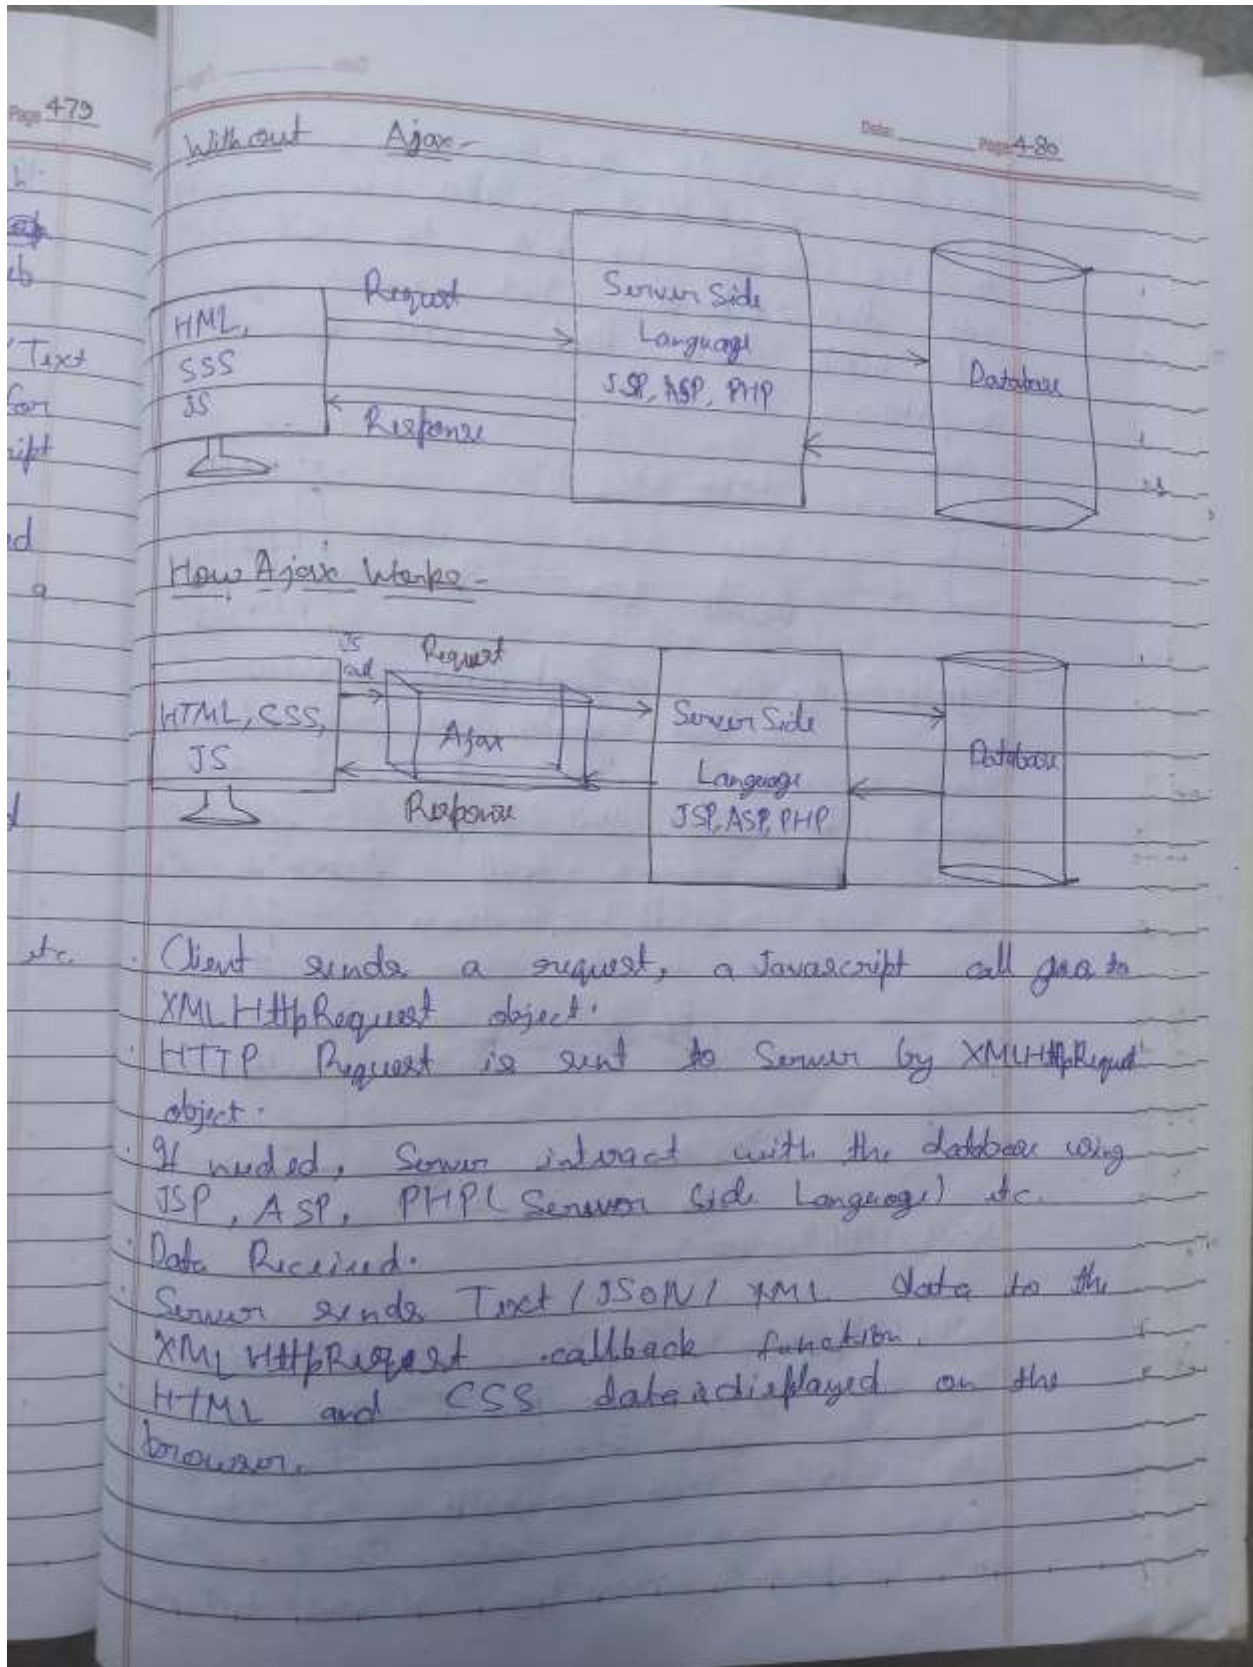 Page 479
Date: Page 480
Without Ajax -
Request
HML,
SSS
JS
Response
Server Side
Language
JSP, ASP, PHP
Database
How Ajax Works -
JS
call
Request
HTML, CSS,
JS
Ajax
Response
Server Side
Language
JSP, ASP, PHP
Database
Text
for
ript
ed
a
etc.
. Client sends a request, a Javascript call goes to
XMLHttpRequest object.
. HTTP Request is sent to Server by XMLHttpRequest
object.
. If needed, Server interact with the database using
JSP, ASP, PHP( Server Side Language) etc.
. Data Received.
. Server sends Text / JSON / XML data to the
XMLHttpRequest callback function.
. HTML and CSS data is displayed on the
browser.